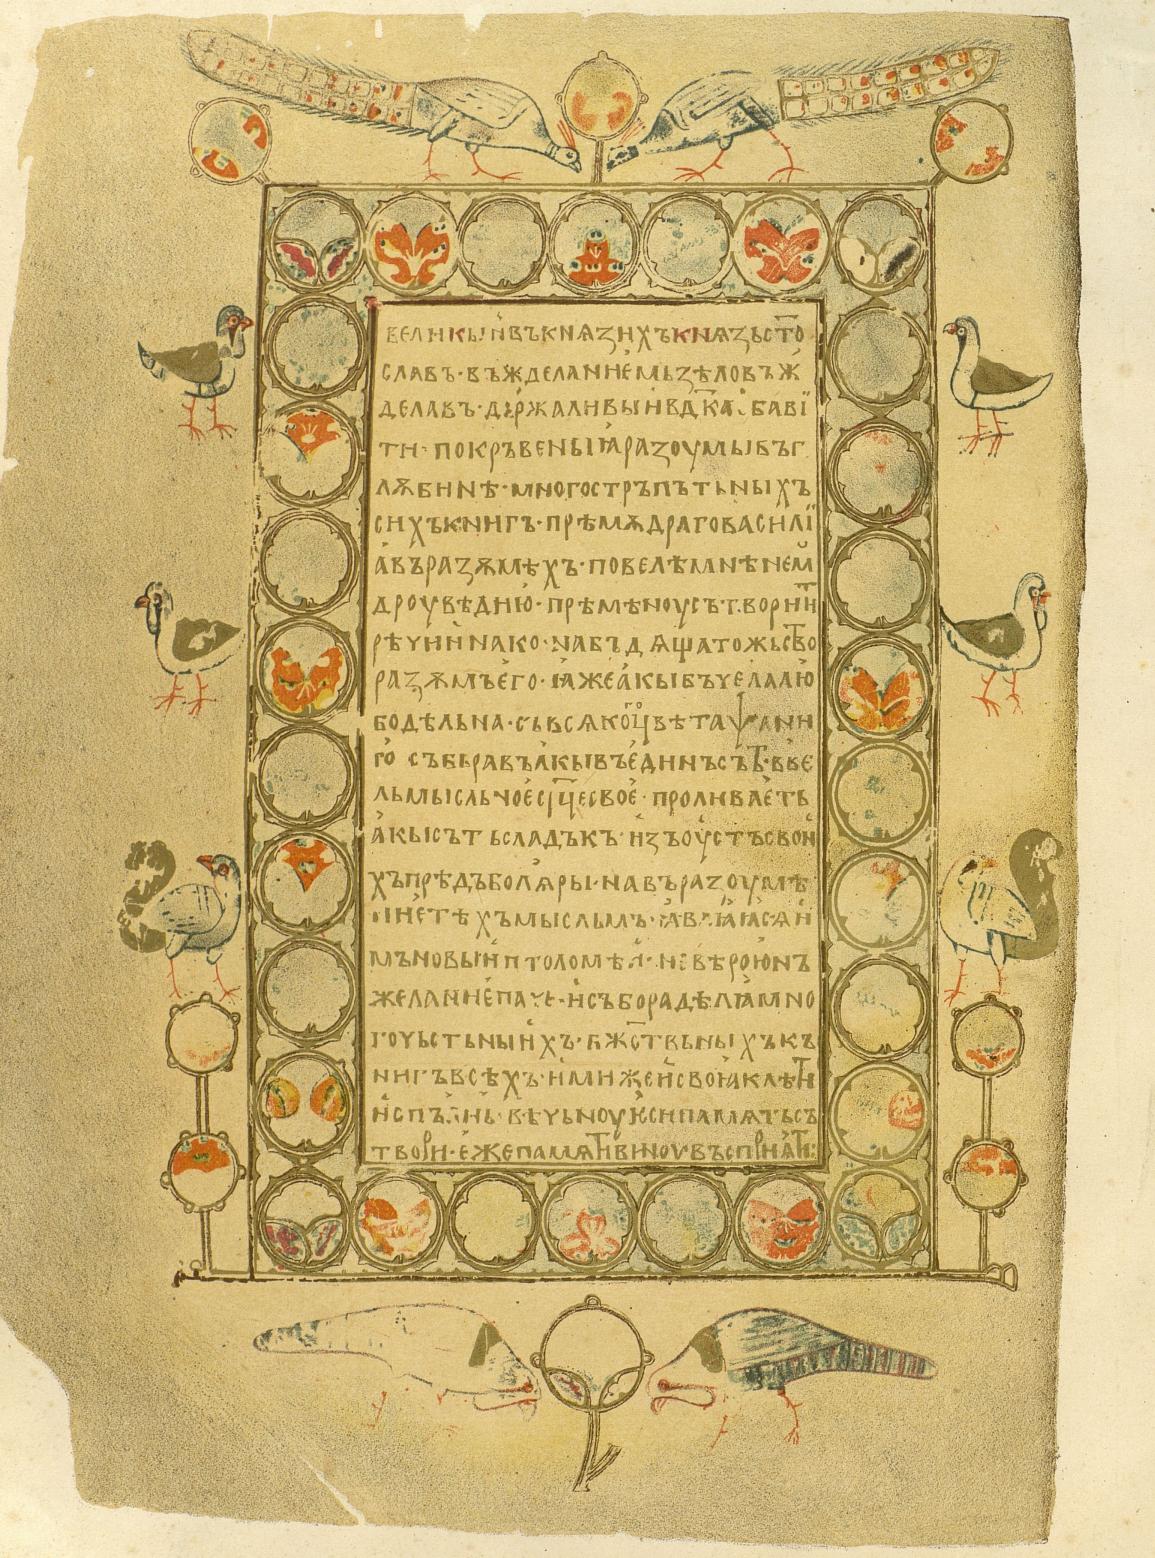 великъıи въ кнѧзихъ кнѧзь ст҃о
славъ · въждѣланиємь зѣло въж
делавъ · дьржаливъıи влⷣка · ѡбавї
ти · покръвенъıꙗ разоумъı въ г
лѫбинѣ · многостръпътьнъıхъ
сихъ книгъ · прѣмѫдрааго василї
а въ разѫмѣхъ · повелѣ мнѣ нем
дроувѣдию · прѣмѣноу сътворити
рѣчи инако · набъдѧща тожьство
разѫмъ єго · ꙗже акъı бъчела лю
бодѣльна · съ вьсꙗкого цвѣта ѱани
ю събьравъ акъı въ єдинъ сътъ · въ ве
льмъıсльноє срⷣце своє · проливаєть
акъı сътъ сладъкъ · из оустъ свои
хъ прѣдъ болѧръı · на въразоумѣ
ниє тѣхъ мъıсльмъ · ꙗвлꙗꙗсѧ и
мъ новъıи птоломѣи · не вѣрою нъ
желаниє паче · и събора дѣлꙗ мно
гочьстьнъıихъ · бжⷭтвьнъıхъ къ
нигъ вьсѣхъ · ими же и своꙗ клѣти
испълнь · вѣчьноую си памѧть съ
твори · єже памѧти вину въсприꙗти: